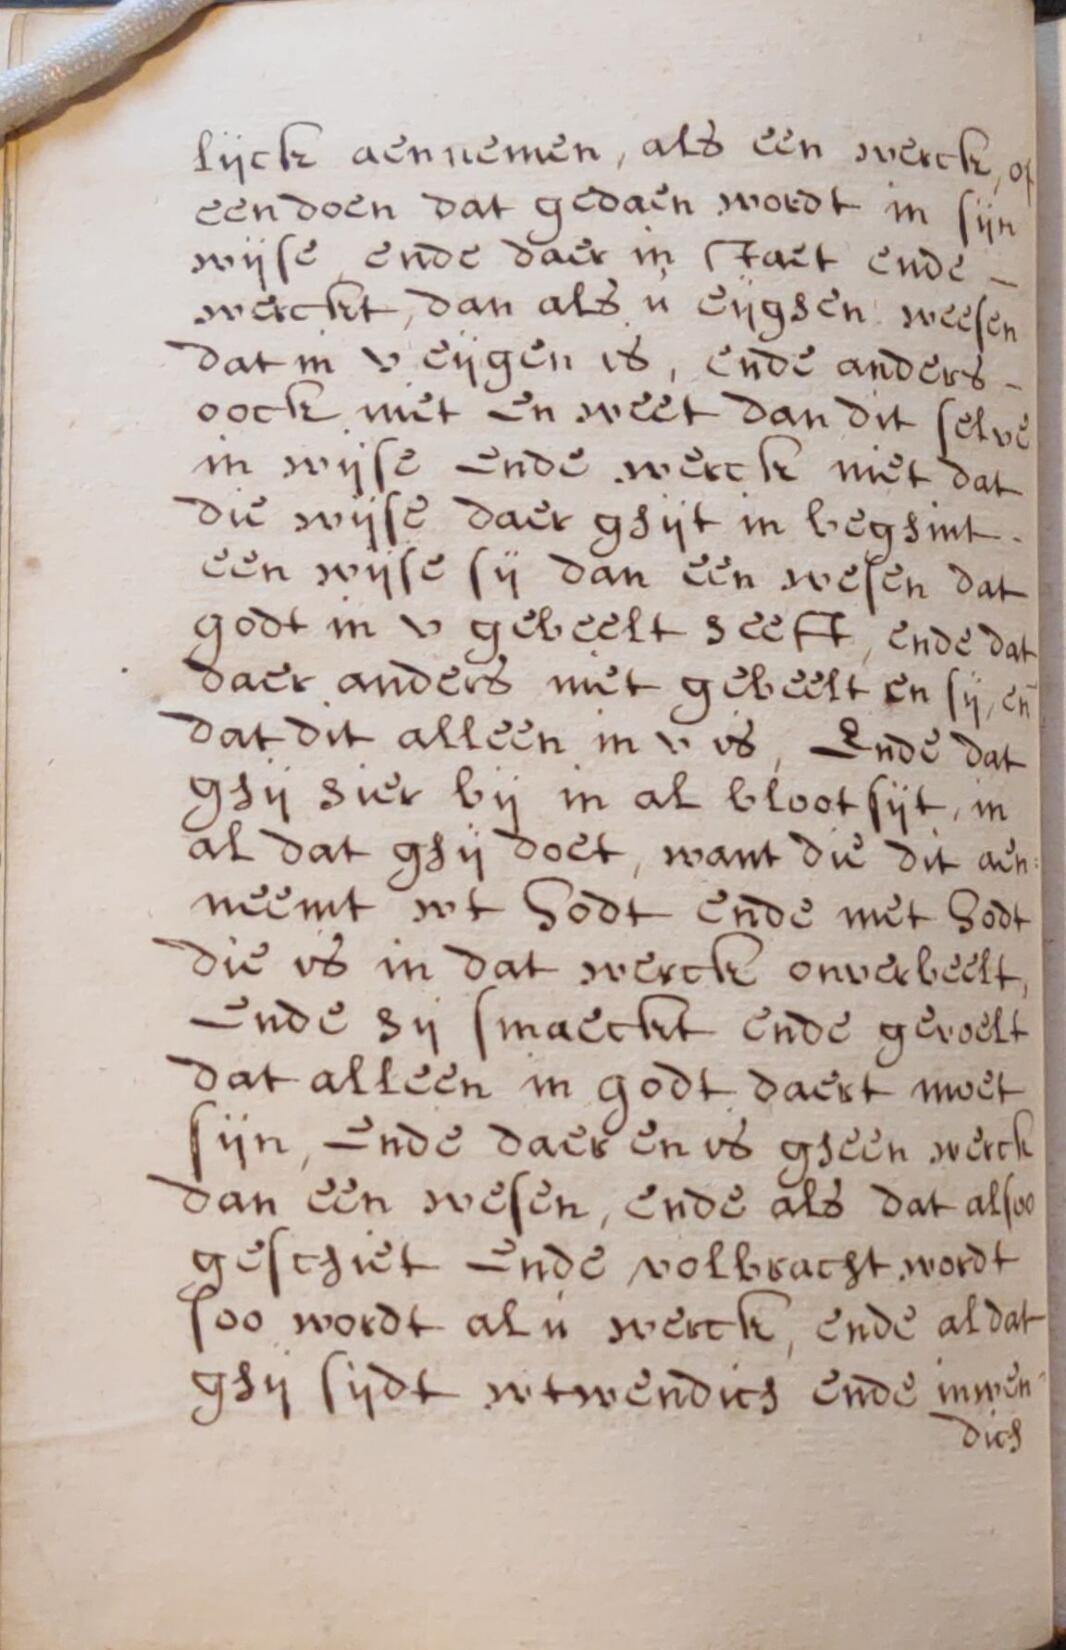 lijck aennemen, als een werck, of
een doen dat gedaen wordt in sijn
wijse ende daer in staet ende –
werckt, dan als ú eijghen weesen
dat in v eijgen is, ende anders –
oock niet en weet dan dit selve
in wijse ende werck niet dat
die wijse daer ghijt in beghint.
een wijse sij dan een wesen dat
godt in v gebeelt heeft, ende dat
daer anders niet gebeelt en sij, en̄
dat dit alleen in v is, Ende dat
ghij hier bij in al bloot sijt, in
al dat ghij doet, want die dit aen:
neemt wt Godt ende met Godt
die is in dat werck onverbeelt,
Ende hij smaeckt ende gevoelt
dat alleen in godt daert moet
sijn, Ende daer en is gheen werck
dan een wesen, ende als dat alsoo
geschiet Ende volbracht wordt
soo wordt al ú werck, ende al dat
ghij sijdt wtwendich ende inwen-
dich